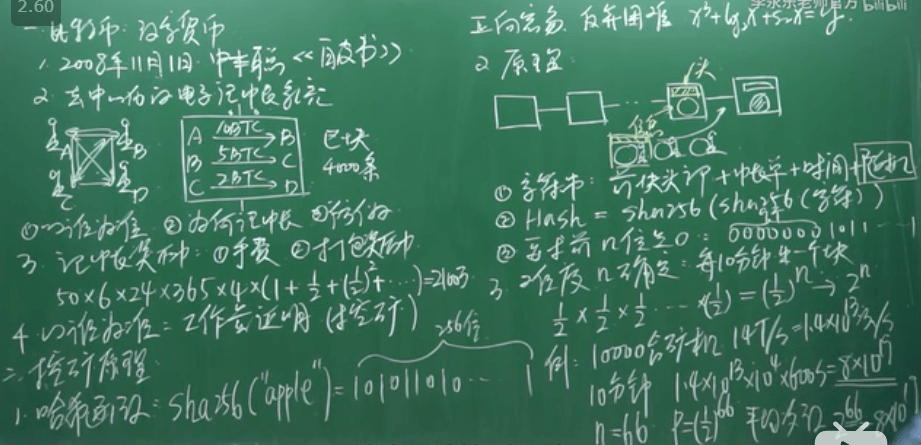 2.60
李永乐老师官方 bilibili
一.比特币:数字货币
1. 2008年11月1日 中本聪《白皮书》
2. 去中心化的电子记帐系统
A B C D
A 10BTC → B
B 5BTC → C
C 2BTC → D
区块
4000条
①以谁为准 ②为何记帐 ③防伪
3. 记帐奖励:①手费 ②打包奖励
50×6×24×365×4×(1+½+(½)²+…)=2100万
4. 以谁为准:工作量证明(挖矿)
二.挖矿原理:
1. 哈希函数:sha256("apple")=101011010…1
256位
正向容易 反算困难 x³+lg x+sin x=y.
2. 原理
头
信息
①字符串:前块头部+帐单+时间+随机
②Hash=sha256(sha256(字符))
③要求前n位是0:00000001011…
3. 难度n确定:每10分钟出一个块
½×½×½…×(½)=(½)ⁿ→2ⁿ
例:10000台矿机 14T/s=1.4×10¹³次/s
10分钟 1.4×10¹³×10⁴×600s=8×10¹⁹
n=66 P=(½)⁶⁶ 平均次数 2⁶⁶=8×10¹⁹